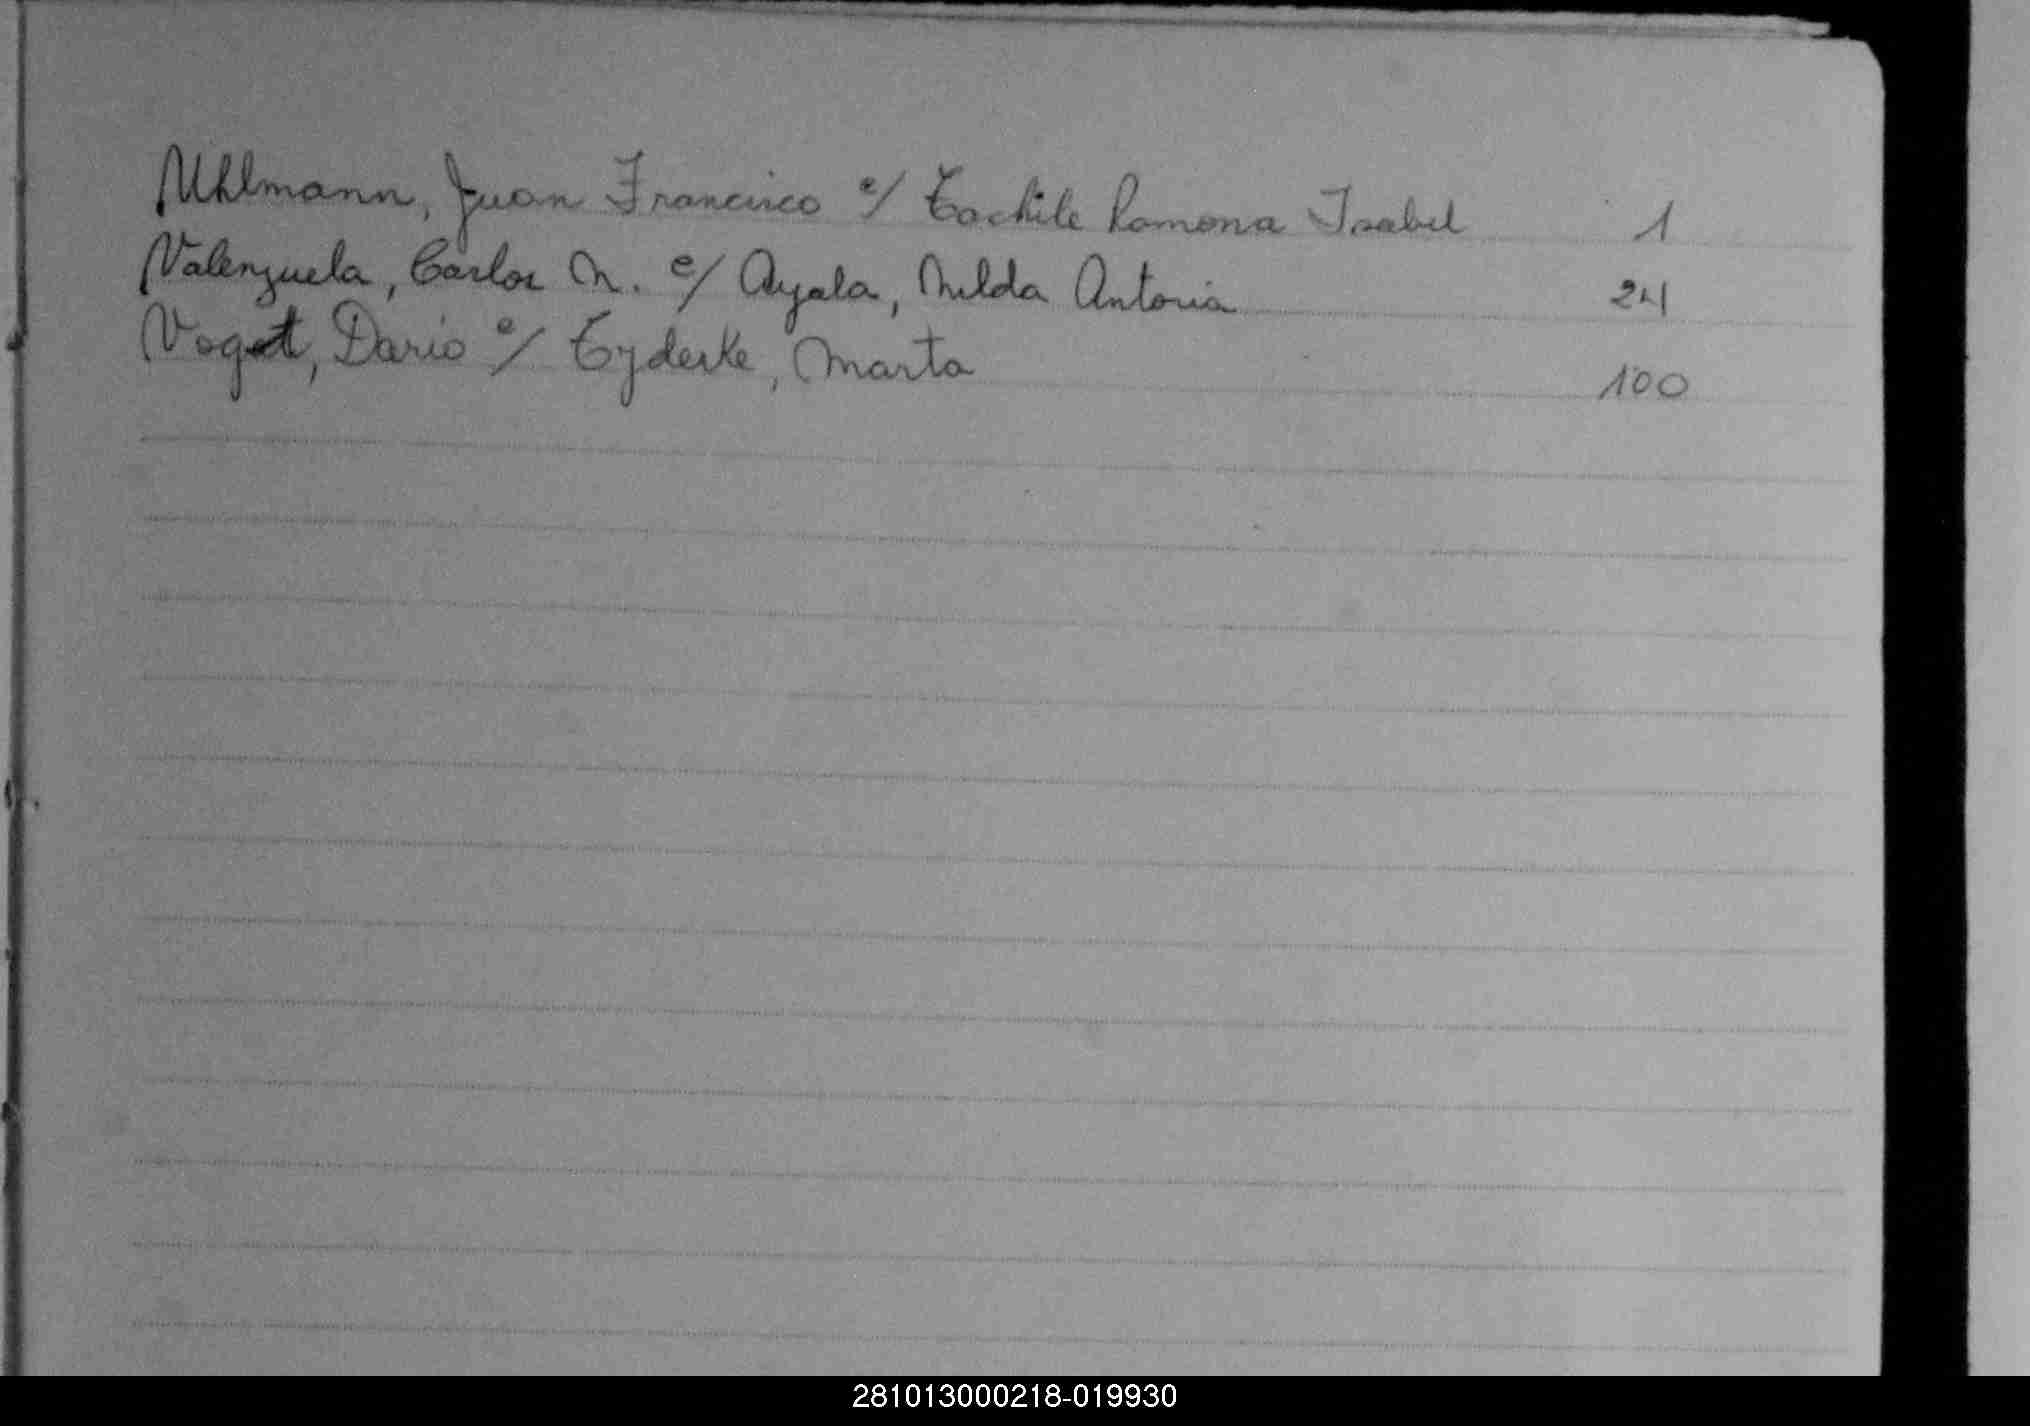 Uhlmann, Juan Francisco c/ Tachile Ramona Isabel 1
Valenzuela, Carlos M. c/ Ayala, Nilda Antonia 24
Vogt, Dario c/ Tyderke, Marta 100
281013000218-019930